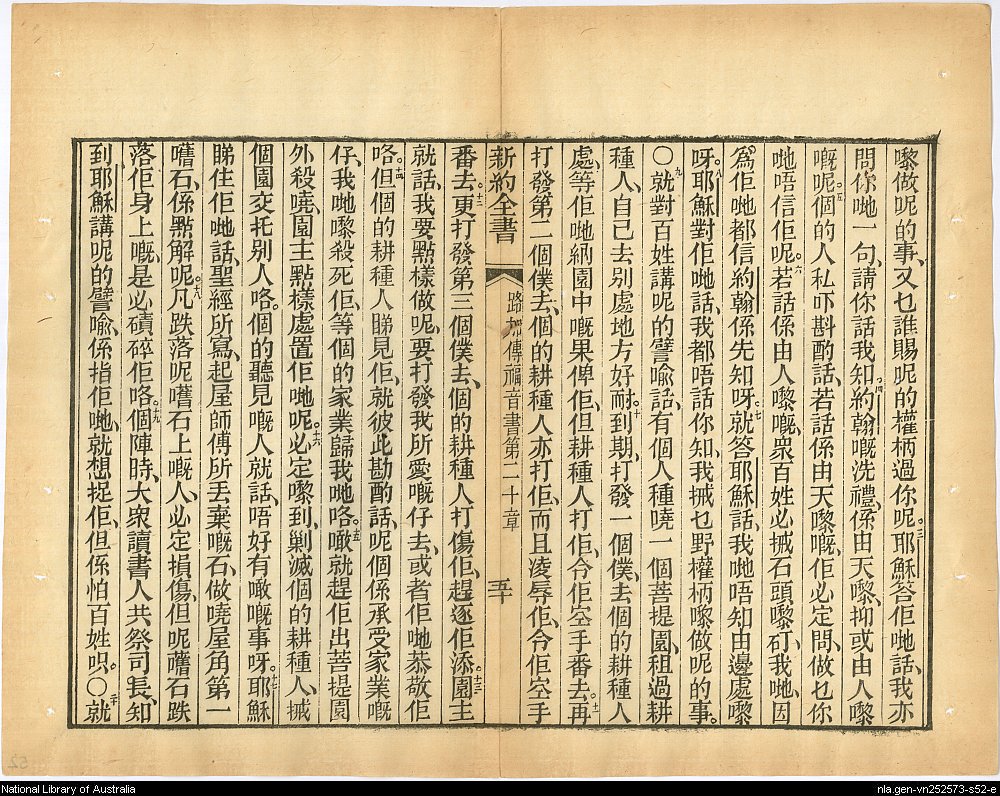 嚟做呢的事、又乜誰賜呢的權柄過你呢。三耶穌答佢哋話、我亦
問你哋一句、請你話我知。四約翰嘅洗禮、係由天嚟、抑或由人嚟
嘅呢。五個的人私吓斟酌話、若話係由天嚟嘅、佢必定問、做乜你
哋唔信佢呢。六若話係由人嚟嘅、衆百姓必搣石頭嚟矴我哋、因
爲佢哋都信約翰係先知呀。七就答耶穌話、我哋唔知由邊處嚟
呀。八耶穌對佢哋話、我都唔話你知、我搣乜野權柄嚟做呢的事。
〇九就對百姓講呢的譬喻話、有個人種嘵一個菩提園、租過耕
種人、自己去别處地方好耐。十到期、打發一個僕、去個的耕種人
處、等佢哋納園中嘅果俾佢、但耕種人打佢、令佢空手番去。十一再
打發第二個僕去、個的耕種人亦打佢、而且凌辱佢、令佢空手
新約全書 路加傳福音書第二十章 五十
番去。十二更打發第三個僕去、個的耕種人打傷佢、趕逐佢添。十三園主
就話、我要點樣做呢、要打發我所愛嘅仔去、或者佢哋恭敬佢
咯。十四但個的耕種人睇見佢、就彼此斟酌話、呢個係承受家業嘅
仔、我哋嚟殺死佢、等個的家業歸我哋咯。十五噉就趕佢出菩提園
外殺嘵、園主點樣處置佢哋呢。十六必定嚟到、剿滅個的耕種人、搣
個園交托别人咯。個的聽見嘅人就話、唔好有噉嘅事呀。十七耶穌
睇住佢哋話、聖經所寫、起屋師傅所丟棄嘅石、做嘵屋角第一
嚿石、係點解呢。十八凡跌落呢嚿石上嘅人、必定損傷、但呢嚿石跌
落佢身上嘅、是必磧碎佢咯。十九個陣時、大衆讀書人共祭司長、知
到耶穌講呢的譬喻、係指佢哋、就想捉佢、但係怕百姓呮。〇二十就
National Library of Australia
nla.gen-vn252573-s52-e